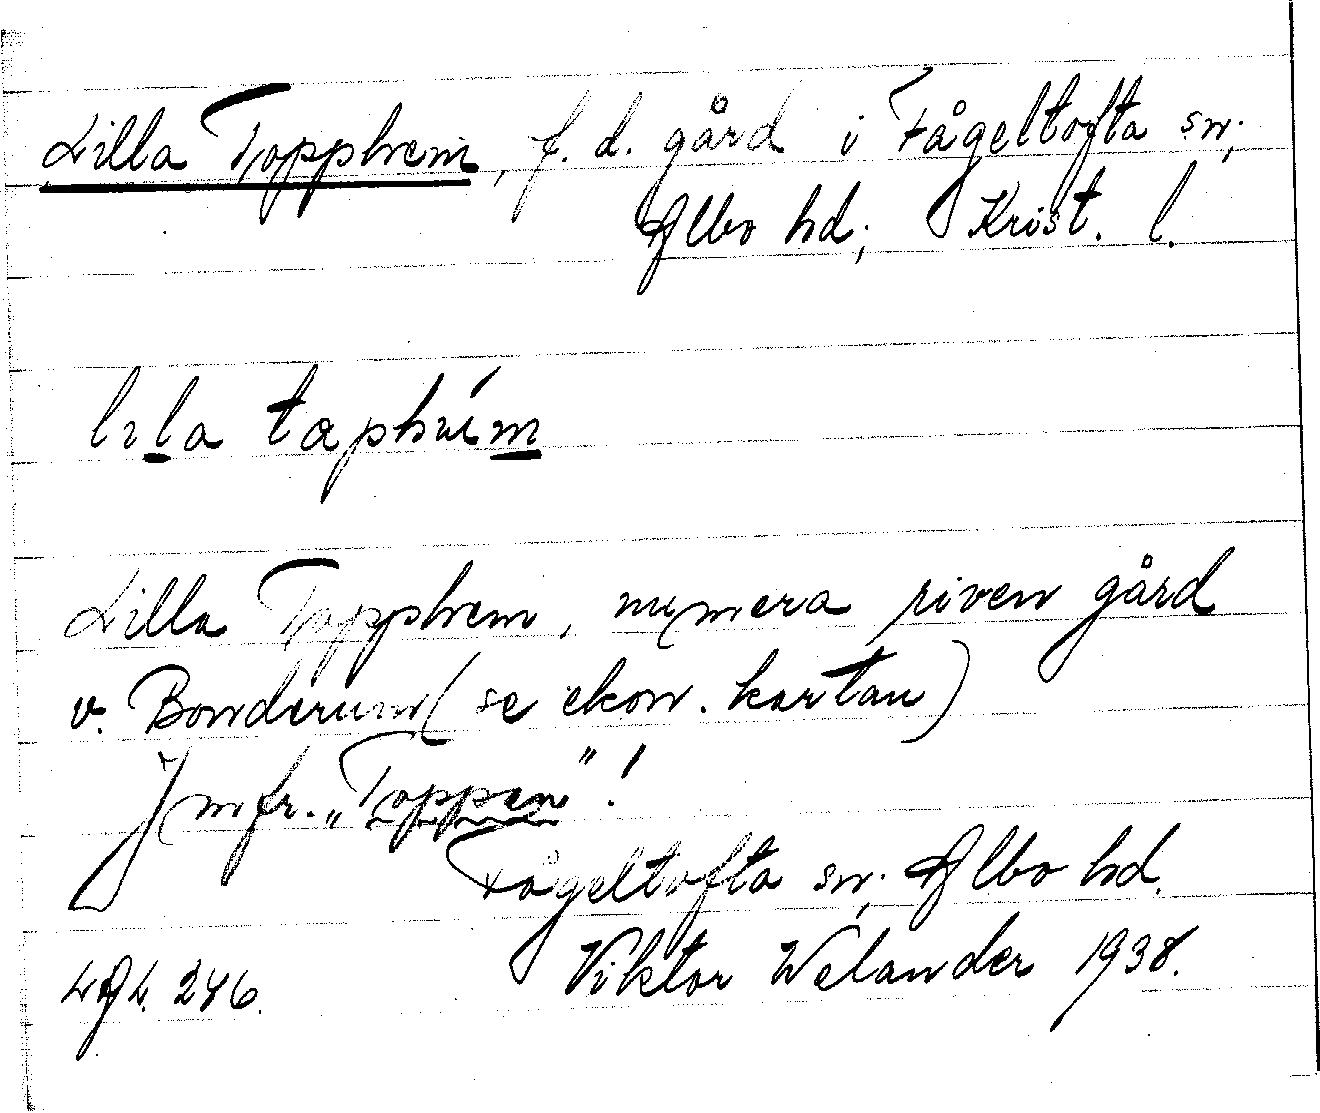 Lilla Topphem, f. d. gård i Fågeltofta sn;
Albo hd; Krist. l.
lıla taphıém
Lilla Topphem, numera riven gård
v. Bonderum (se ekon. kartan)
Jmfr. „Toppen" !
Fågeltofta sn; Albo hd.
LAL. 246. Viktor Welander 1938.